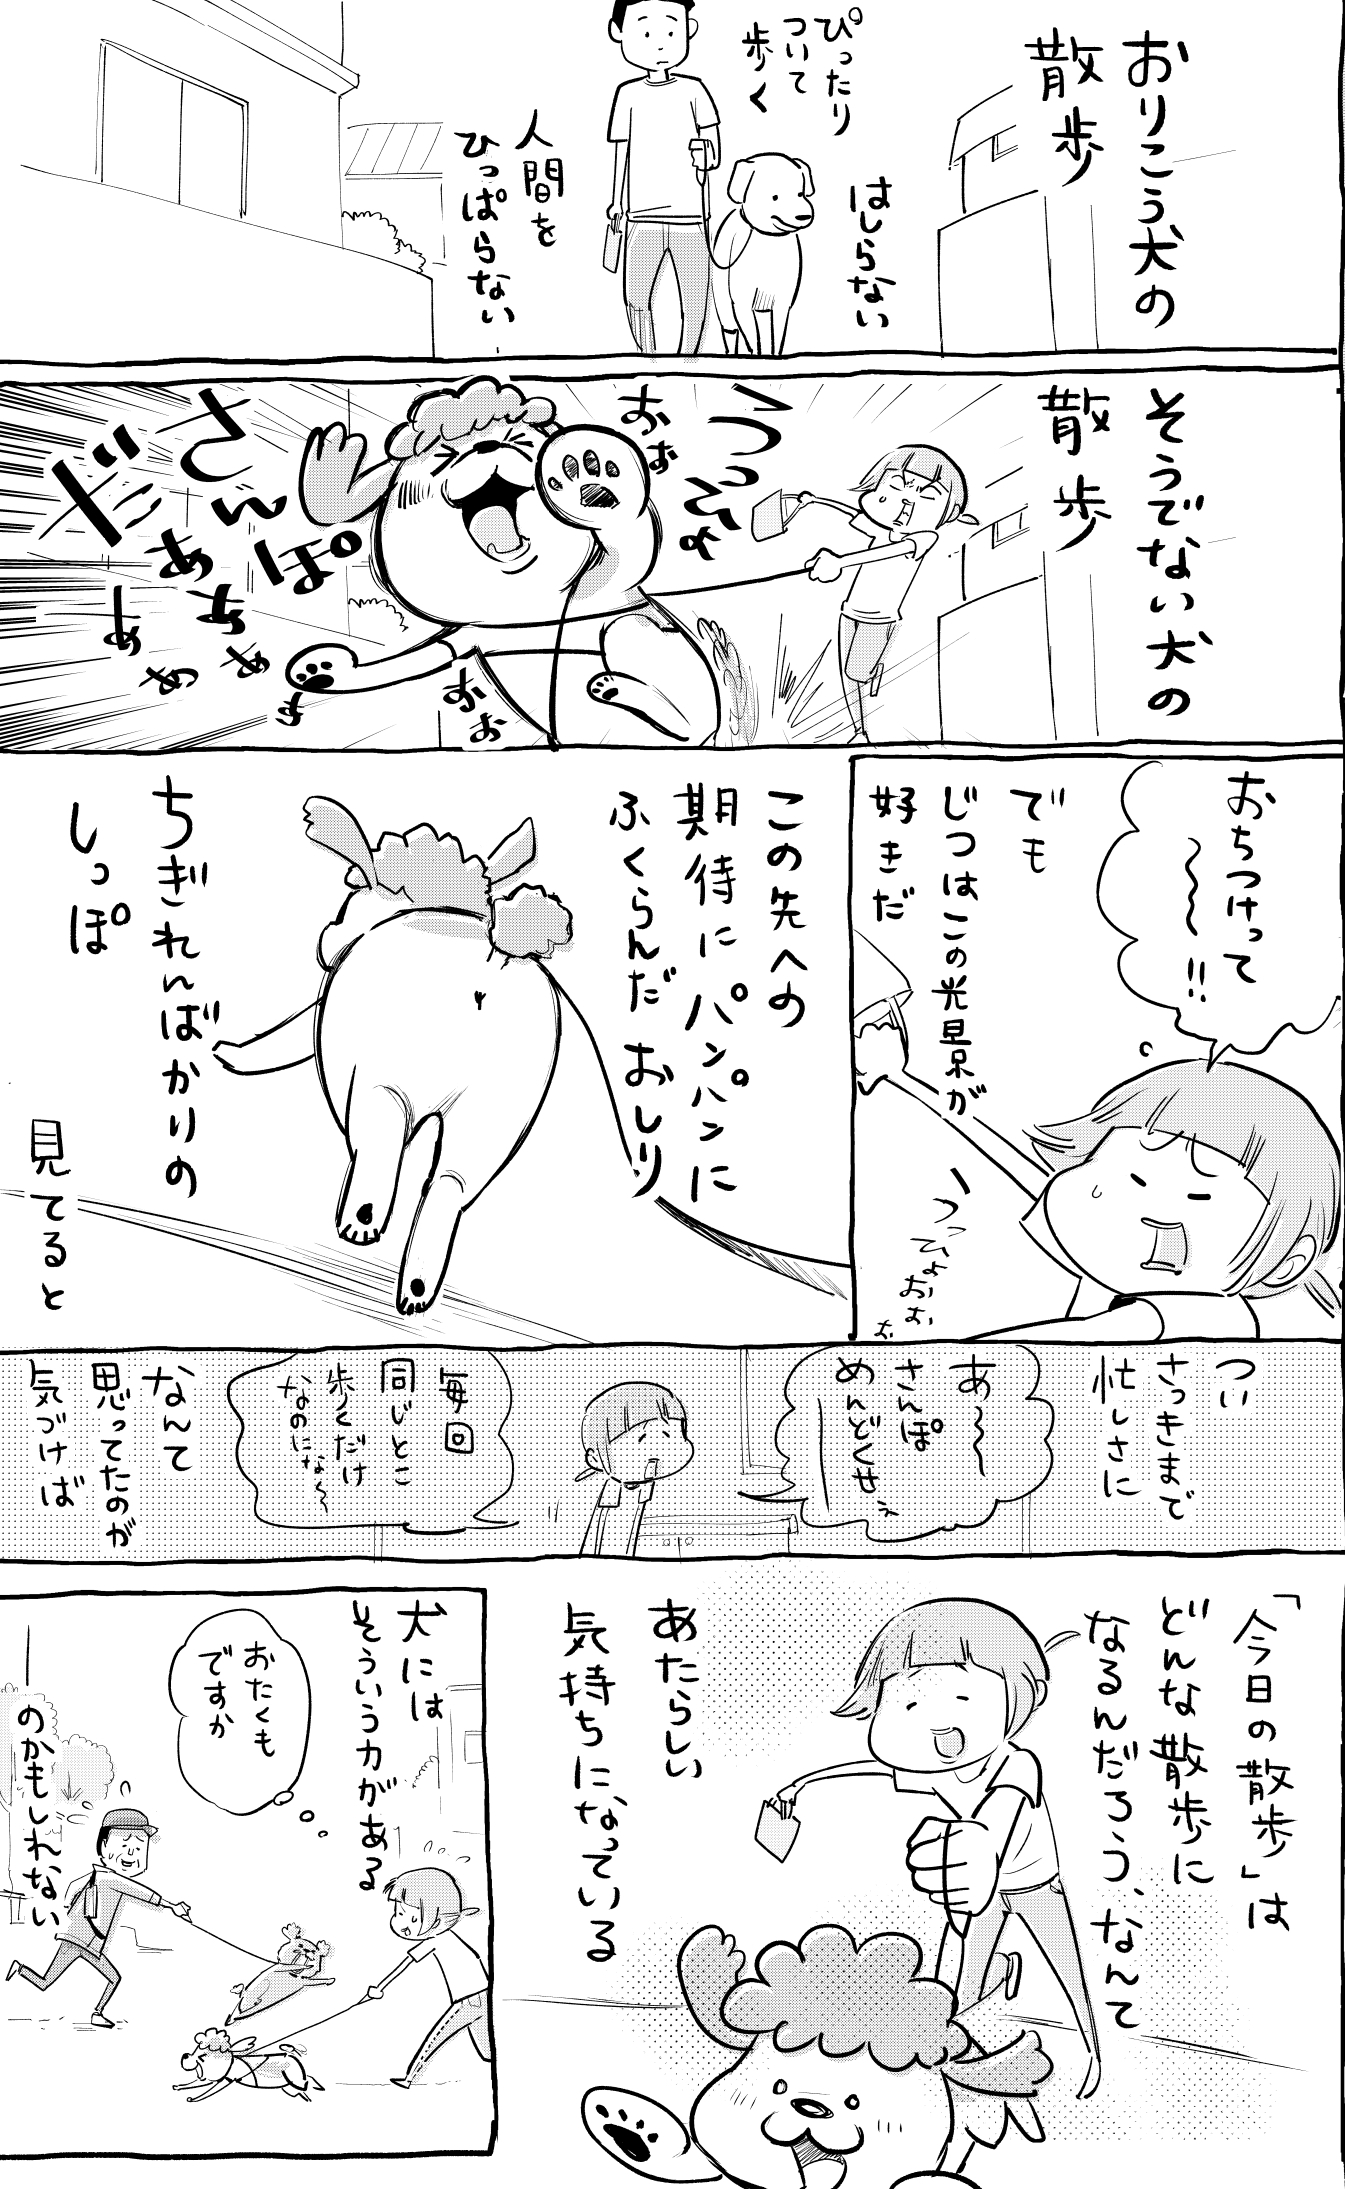 おりこう犬の
散歩
ぴったり
ついて
歩く
はしらない
人間を
ひっぱらない
そうでない犬の
散歩
うっひょ
おぉ
おぉ
さんぽ
だぁぁぁ
おちつけって
〜〜!!
でも
じつはこの光景が
好きだ
うっひょおぉぉ
この先への
期待にパンパンに
ふくらんだおしり
ちぎれんばかりの
しっぽ
見てると
つい
さっきまで
忙しさに
あ〜〜
さんぽ
めんどくせぇ
毎回
同じとこ
歩くだけ
なのにな〜
なんて
思ってたのが
気づけば
「今日の散歩」は
どんな散歩に
なるんだろう、なんて
あたらしい
気持ちになっている
犬には
そういう力がある
おたくも
ですか
のかもしれない